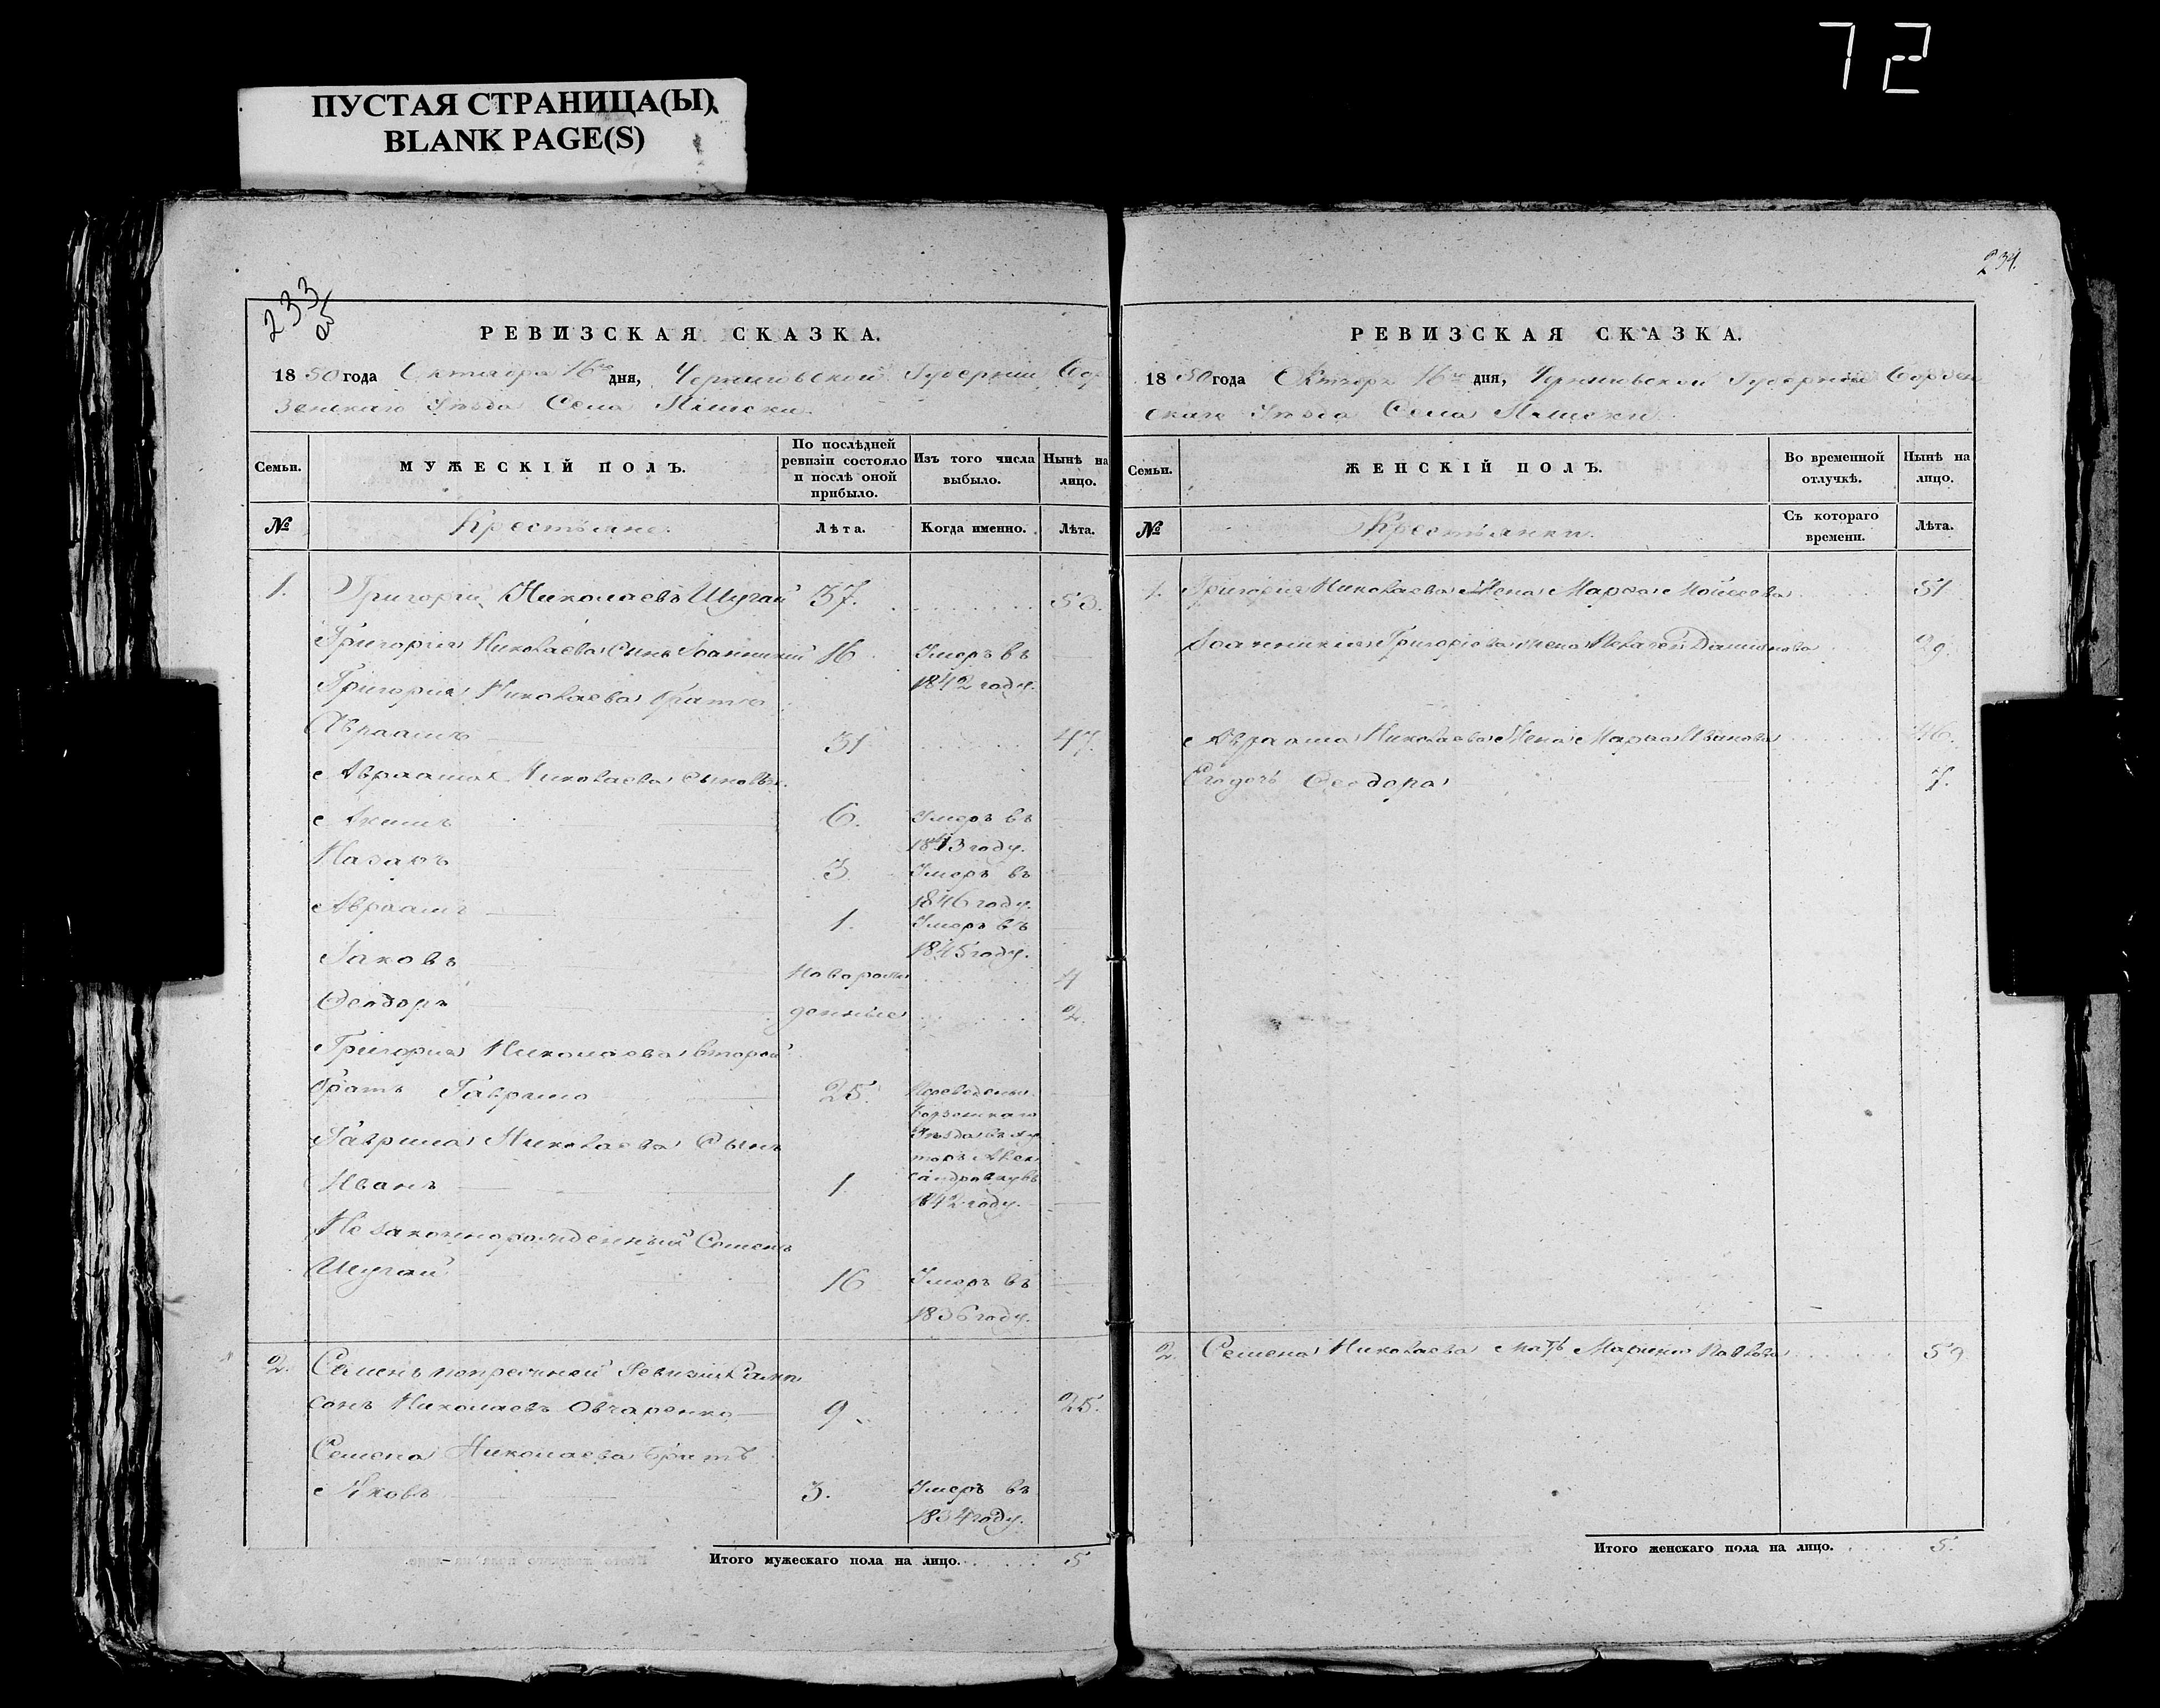 72
ПУСТАЯ СТРАНИЦА(Ы)
BLANK PAGE(S)
233
об
РЕВИЗСКАЯ СКАЗКА.
1850 года Октября 16го дня, Черниговской Губернии Бор
зенскаго Уѣзда Села
Семьи.
МУЖЕСКІЙ ПОЛЪ.
По послѣдней ревизіи состояло и послѣ оной прибыло.
Изъ того числа выбыло.
Нынѣ на лицо.
№
Крестьяне.
Лѣта.
Когда именно.
Лѣта.
1. Григорій Николаевъ Шугай 37. 53.
Григорія Николаева Сынъ Іоанникій 16 Умеръ въ
1842 году.
Григорія Николаева братъ
Авраамъ 31 47.
Авраама Николаева сыновья.
Акимъ 6. Умеръ въ
1843 году.
Назаръ 3 Умеръ въ
1846 году.
Авраамъ 1. Умеръ въ
1845 году.
Іаковъ новорож 4
Ѳеодоръ денные 2.
Григорія Николаева второй
братъ Гаврило 25. Переведенъ
Борзенскаго
Гаврила Николаева Сынъ Уѣзда въ ху
торъ Алек
Иванъ 1 сандровку въ
1842 году.
Незаконнорожденный Семенъ
Шугай 16 Умеръ въ
1836 году.
2. Семенъ попрежней Ревизіи Самп
сонъ Николаевъ Овчаренко 9 25.
Семена Николаева братъ
Яковъ 3. Умеръ въ
1834 году.
Итого мужескаго пола на лицо. 5
234.
РЕВИЗСКАЯ СКАЗКА.
1850 года Октября 16го дня, Черниговской Губерніи Борзен
скаго Уѣзда Села
Семьи.
ЖЕНСКІЙ ПОЛЪ.
Во временной отлучкѣ.
Нынѣ на лицо.
№
Крестьянки.
Съ котораго времени.
Лѣта.
1. Григорія Николаева Жена Марфа Моисеева 51
Іоанникія Григоріева жена Пелагея Даміанова 29.
Авраама Николаева Жена Марфа Иванова 46.
Ѳеодора 7.
2. Семена Николаева мать Марина Павлова 59
Итого женскаго пола на лицо. 5.